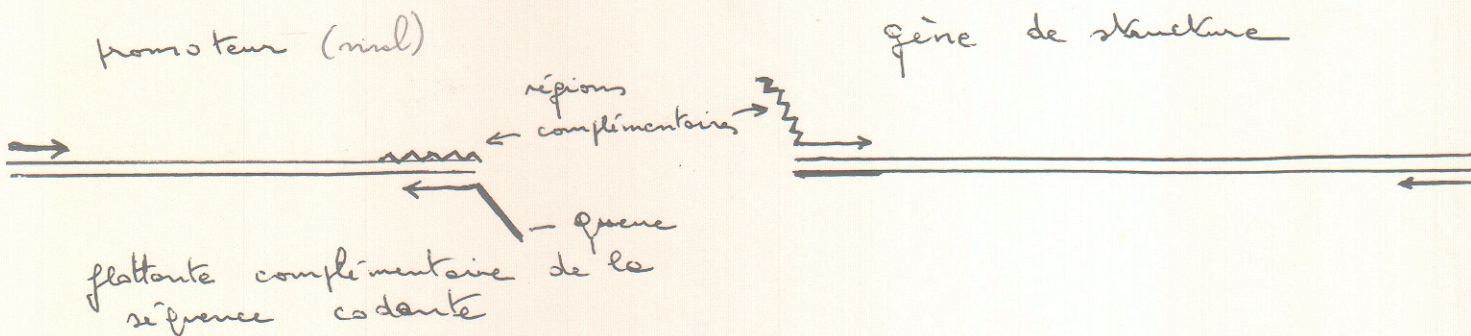 promoteur (viral)
gène de structure
régions
complémentaires
queue
flottante complémentaire de la
séquence codante